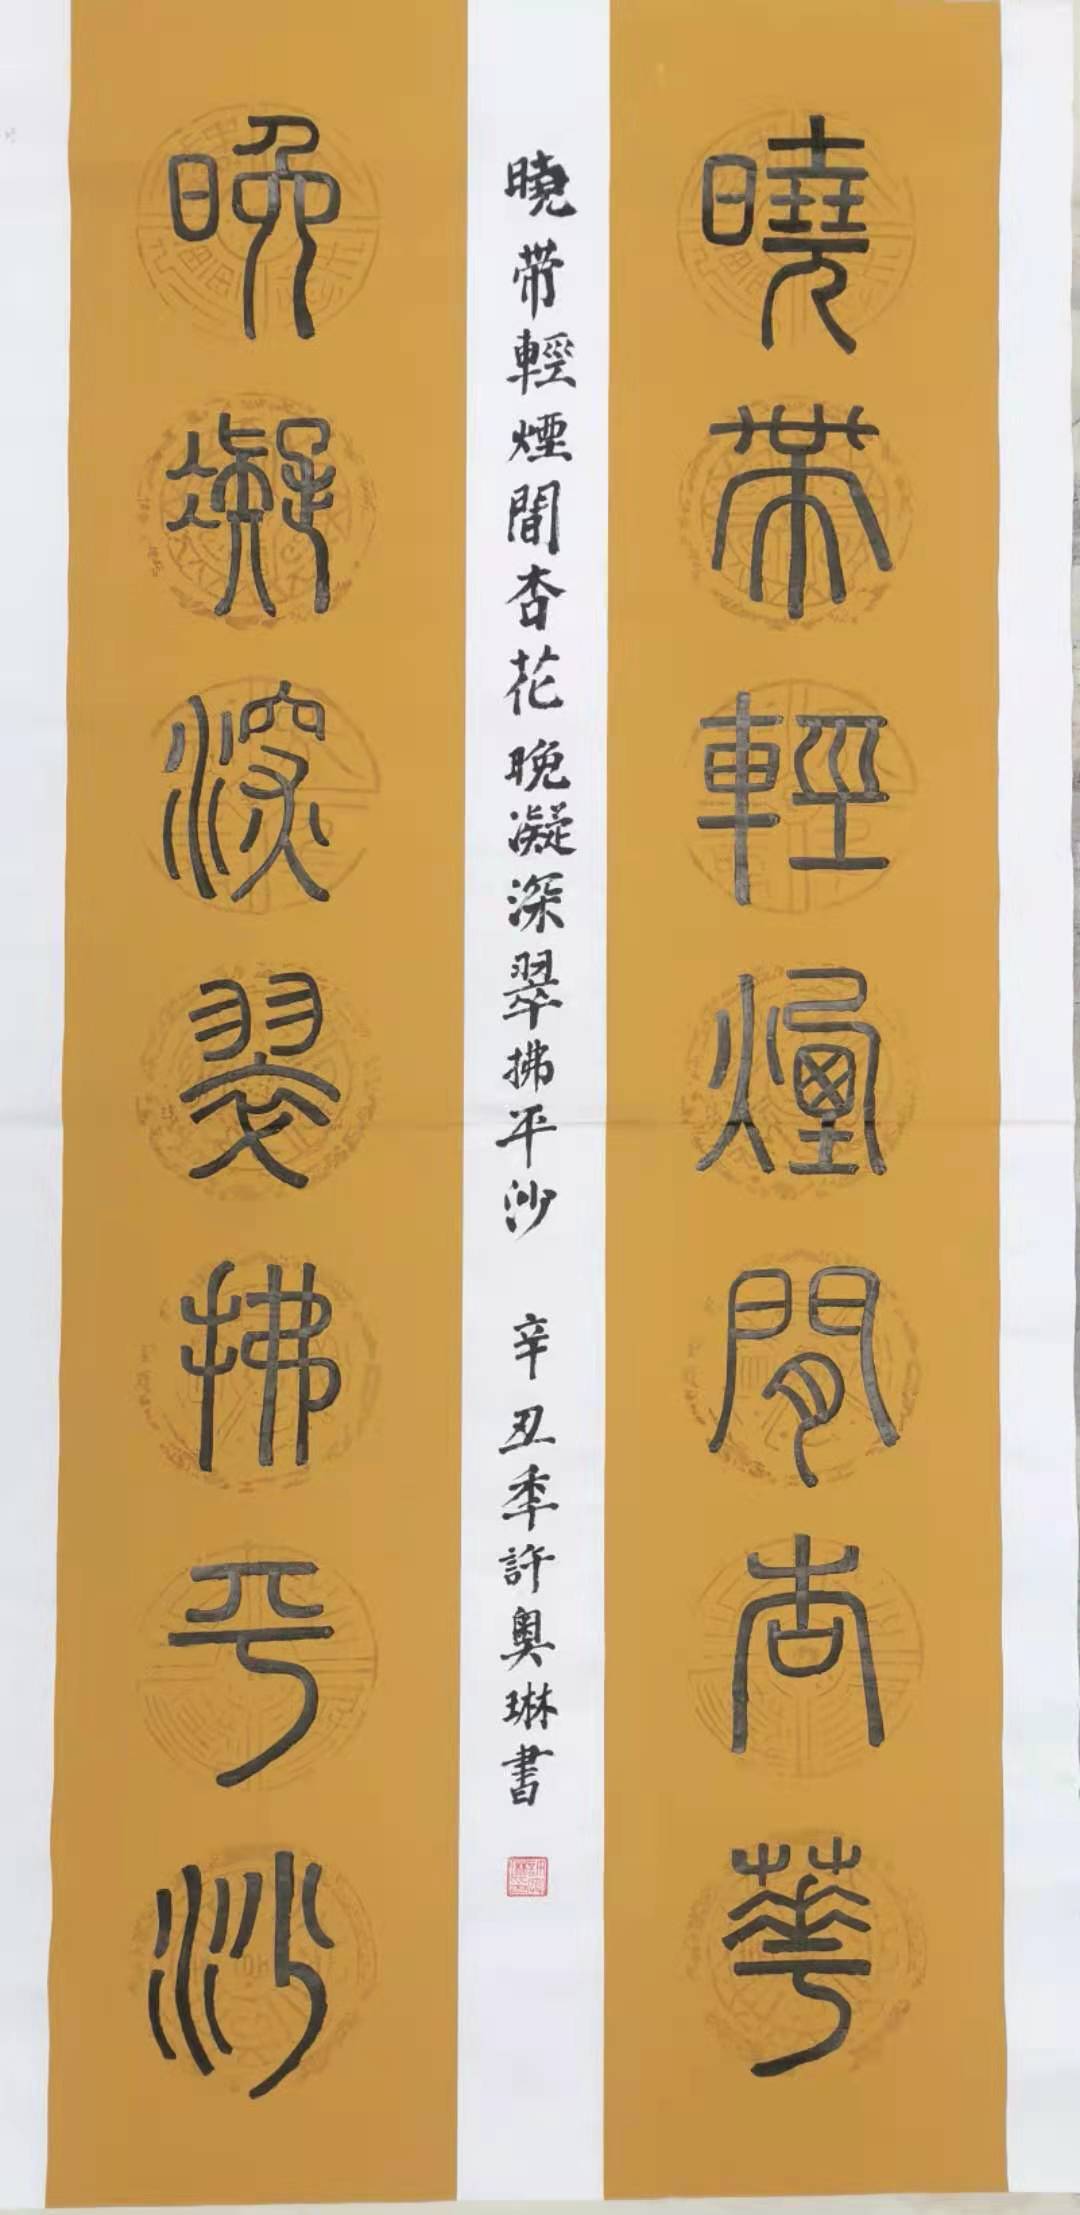 曉帶輕煙間杏華
晚凝深翠拂平沙
曉帶輕煙間杏花晚凝深翠拂平沙 辛丑年許奧琳書